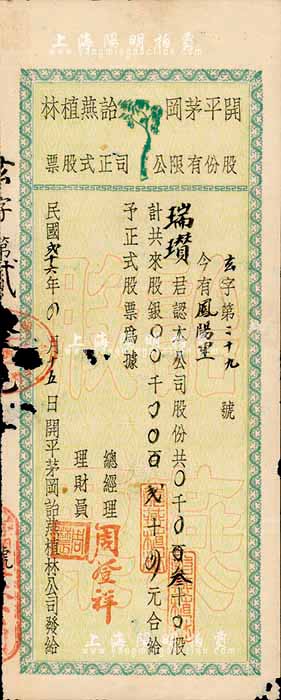 上海陽明拍賣
開平茅岡詒燕植林
股份有限公司正式股票
玄字第二十九號
今有鳳陽堂
瑞瓚君認本公司股份共〇千〇百叁十〇股
計共來股銀〇〇千〇〇百弍十〇元合給
予正式股票為據
總經理
理財員
周登祥
民國弍十六年〇月十五日開平茅岡詒燕植林公司發給
玄字第弍
號
上海陽明拍賣